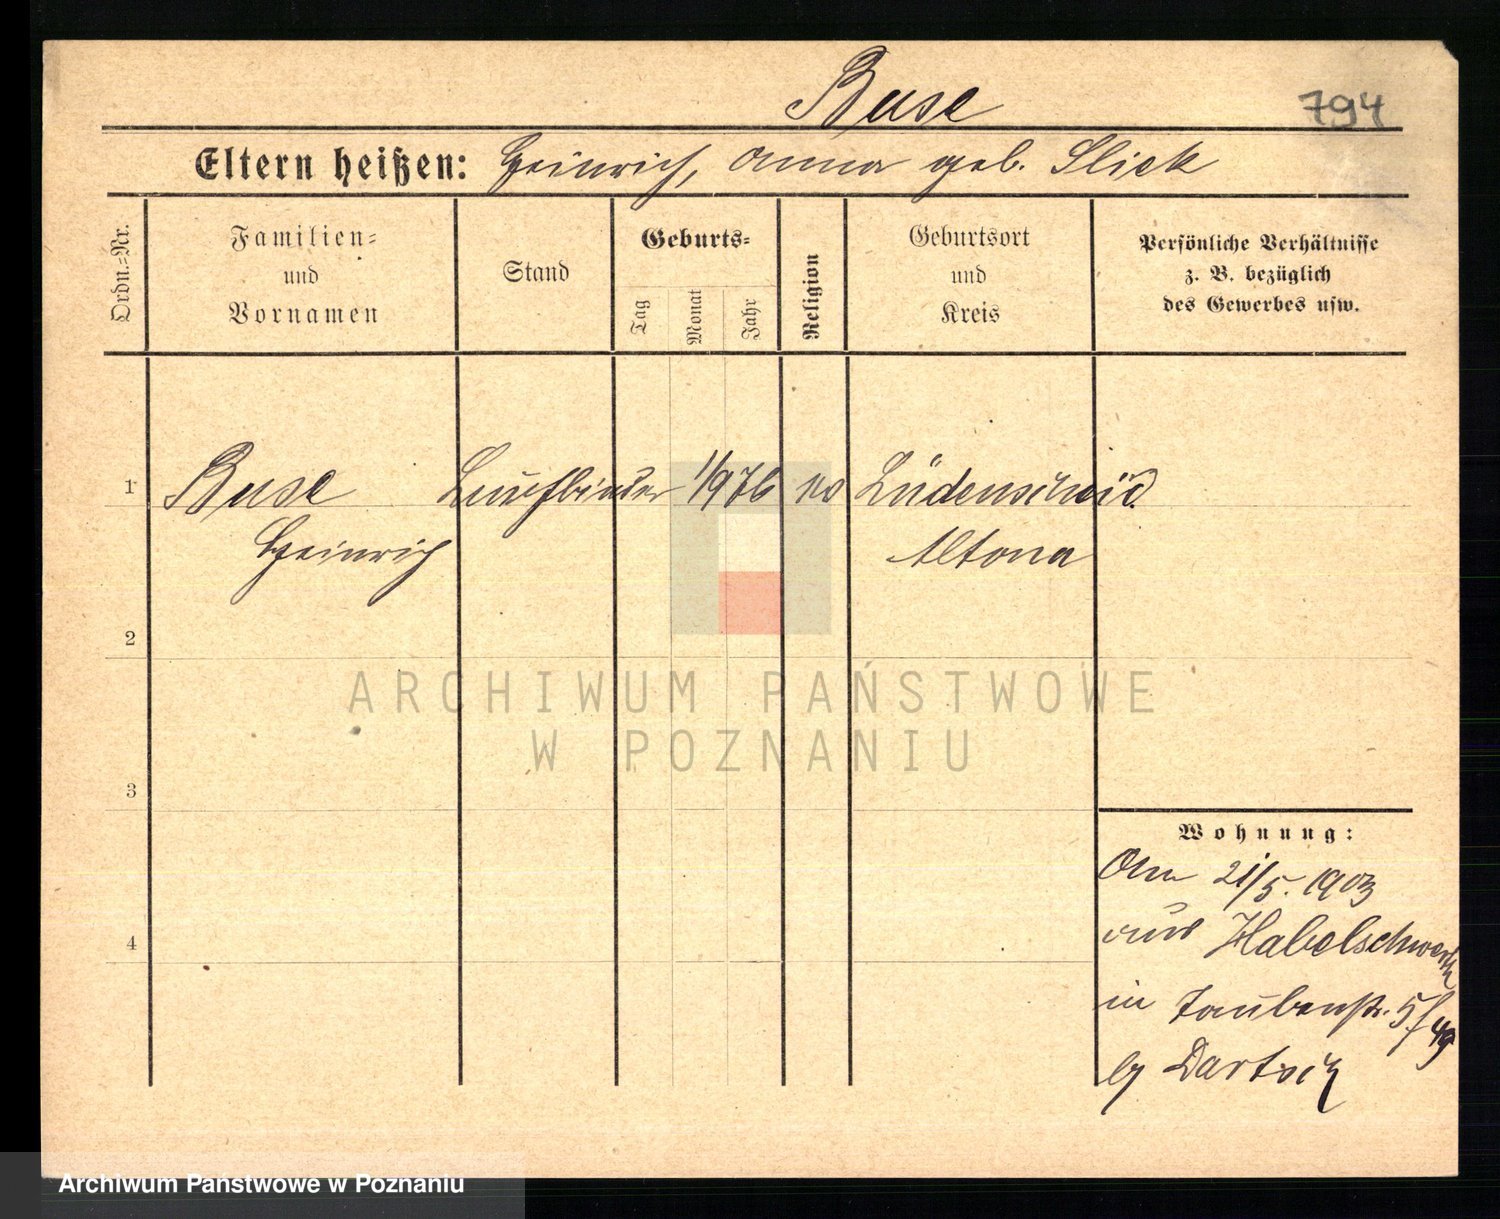 Buse
794
Eltern heißen: Heinrich, Anna geb. Slick
Ordn.-Nr.
Familien-
und
Vornamen
Stand
Geburts-
Tag
Monat
Jahr
Religion
Geburtsort
und
Kreis
Persönliche Verhältnisse
z. B. bezüglich
des Gewerbes usw.
1 Buse 1/9 76 Lüdenscheid
Heinrich Altona
2
3
4
ARCHIWUM PAŃSTWOWE
W POZNANIU
Wohnung:
Am 21/5. 1903
aus Habelschwerdt
in Taubenstr. 5/49
Archiwum Państwowe w Poznaniu